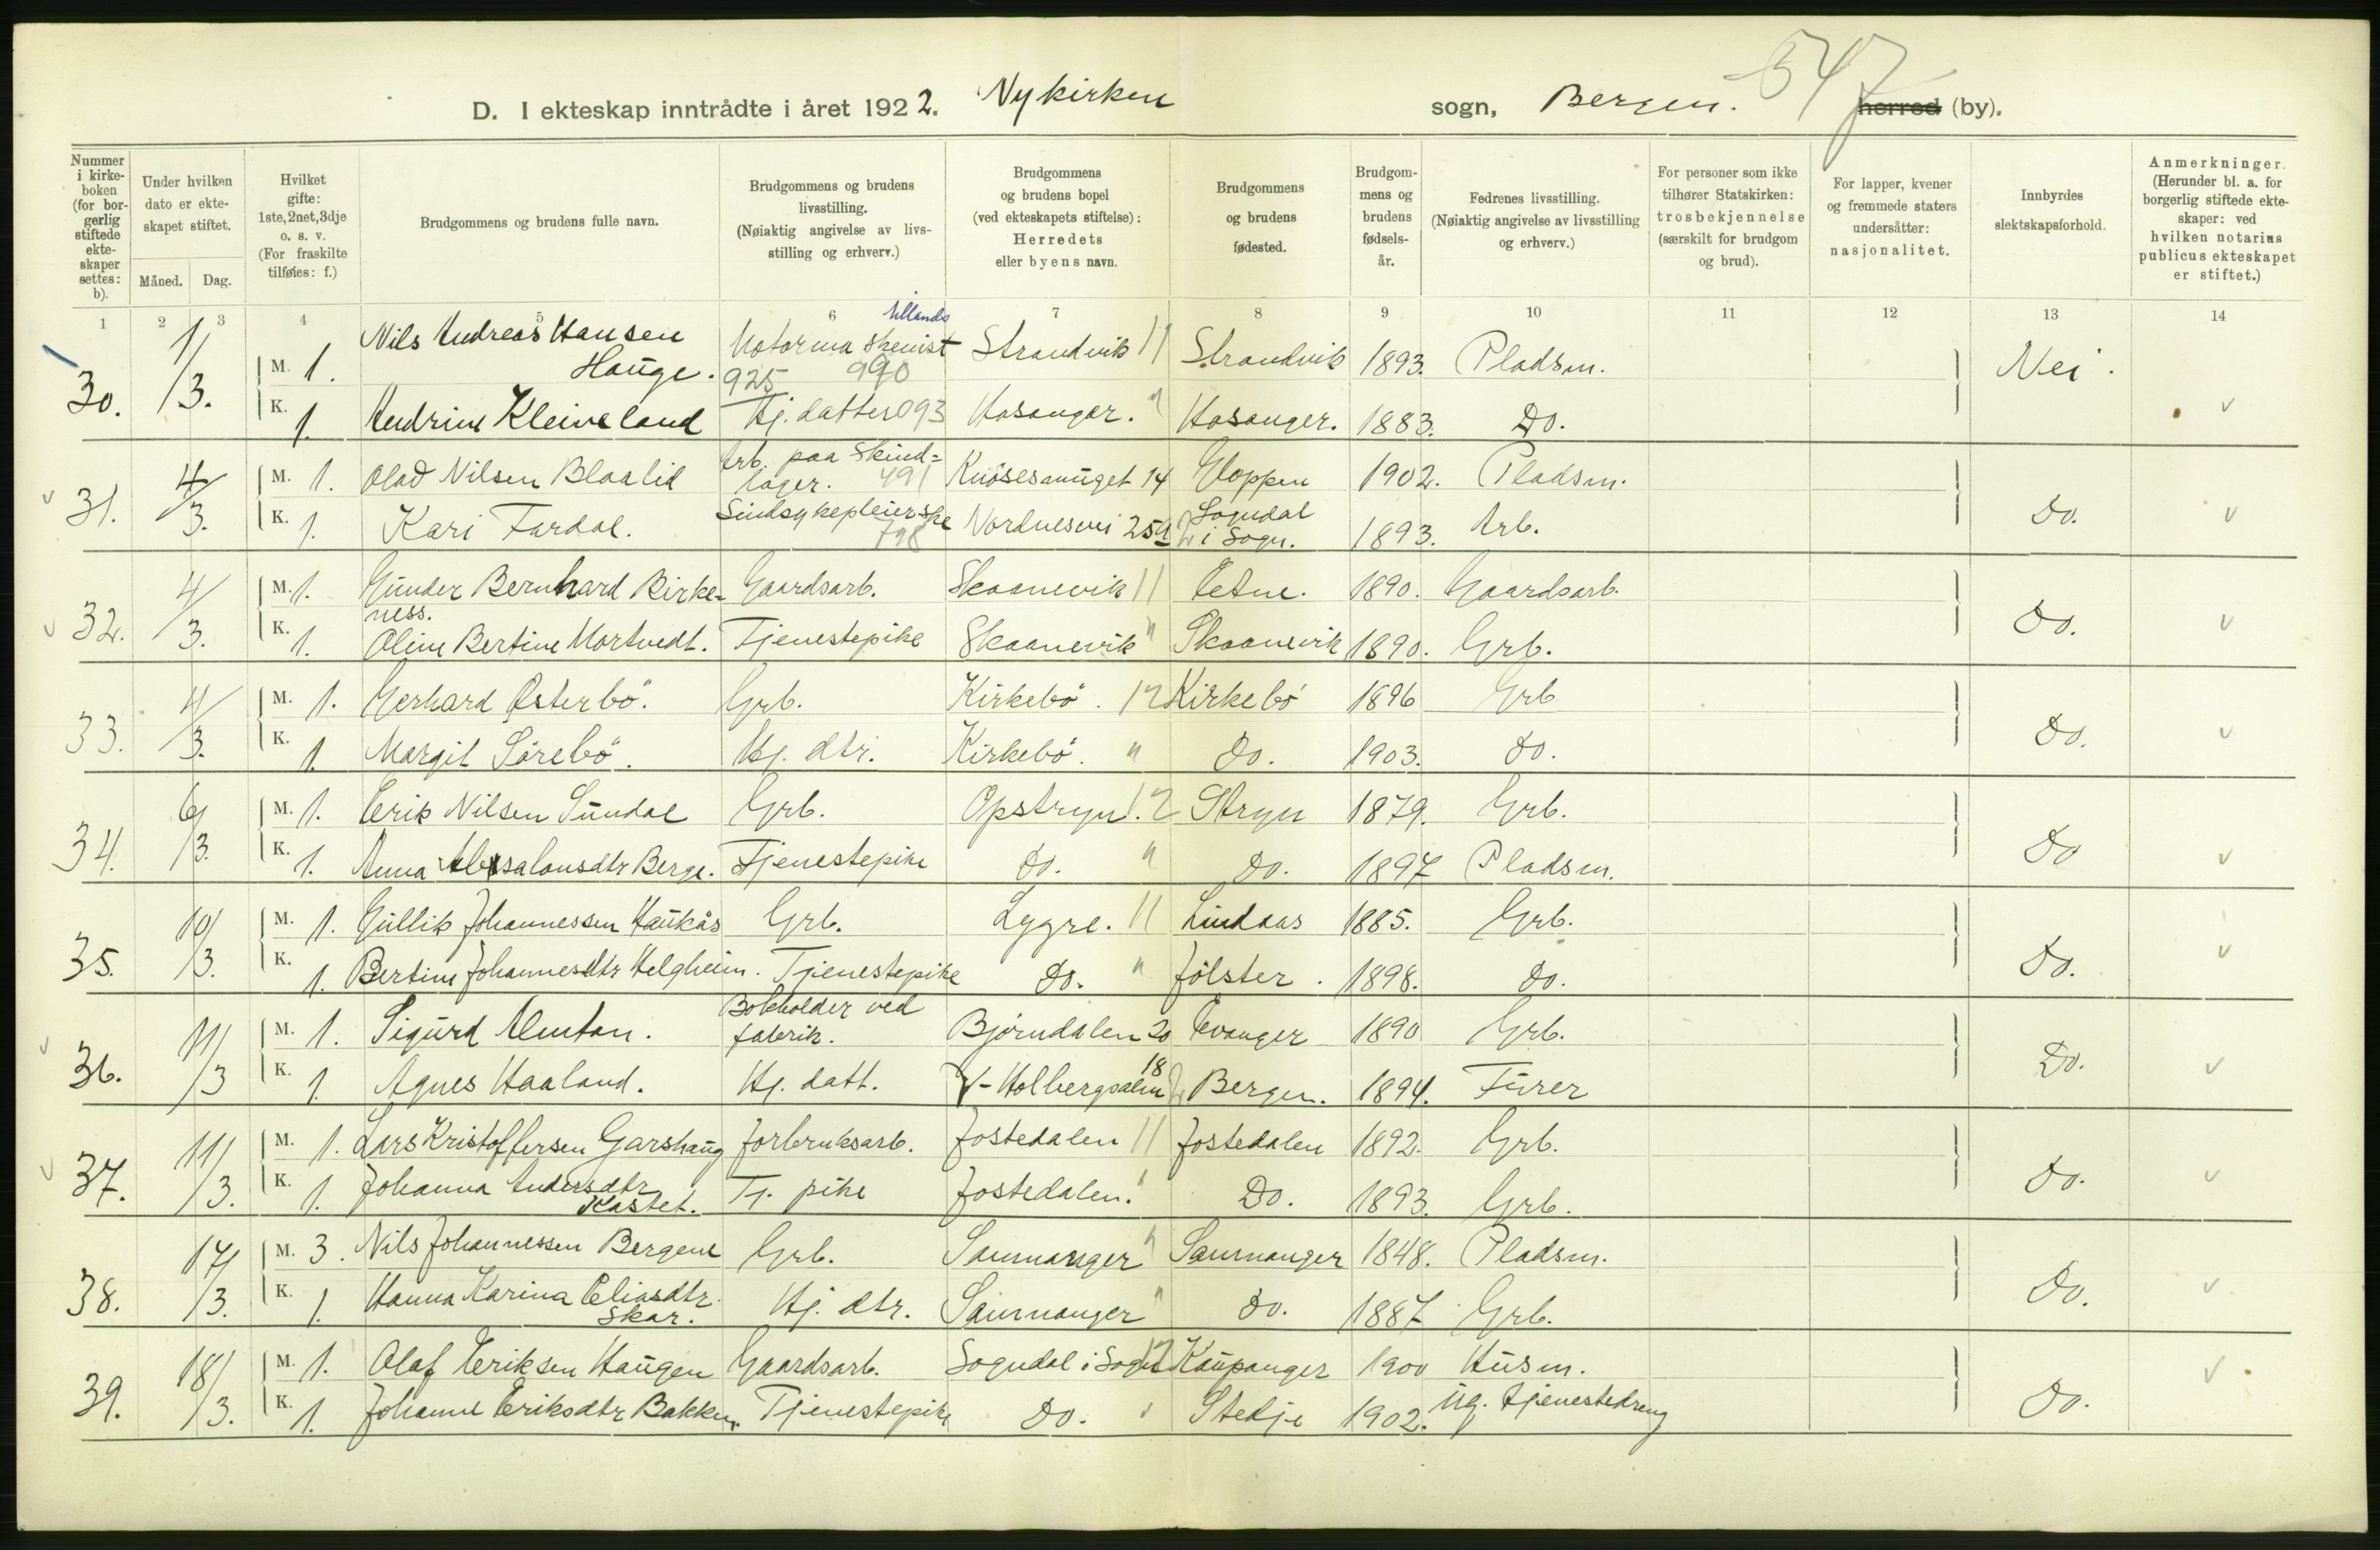 547
D. I ekteskap inntrådte i året 1922. Nykirken sogn, Bergen. herred (by).
Nummer i kirkeboken (for borgerlig stiftede ekteskaper settes: b).
Under hvilken dato er ekteskapet stiftet. Måned. Dag.
Hvilket gifte: 1ste, 2net, 3dje o. s. v. (For fraskilte tilføies: f.)
Brudgommens og brudens fulle navn.
Brudgommens og brudens livsstilling. (Nøiaktig angivelse av livsstilling og erhverv.)
Brudgommens og brudens bopel (ved ekteskapets stiftelse): Herredets eller byens navn.
Brudgommens og brudens fødested.
Brudgommens og brudens fødselsår.
Fedrenes livsstilling. (Nøiaktig angivelse av livsstilling og erhverv.)
For personer som ikke tilhører Statskirken: trosbekjennelse (særskilt for brudgom og brud).
For lapper, kvener og fremmede staters undersåtter: nasjonalitet.
Innbyrdes slektskapsforhold.
Anmerkninger. (Herunder bl. a. for borgerlig stiftede ekteskaper: ved hvilken notarius publicus ekteskapet er stiftet.)
1 2 3 4 5 6 7 8 9 10 11 12 13 14
30. 1/3. M. 1. Nils Andreas Hansen Hauge. Motormaskenist 925 990 Strandvik 11 Strandvik 1893. Pladsm. Nei.
K. 1. Andrine Kleiveland Hj. datter 093 Hosanger. " Hosanger. 1883. Do. v
v 31. 4/3. M. 1. Olav Nilsen Blaalid Arb. paa Skind=lager. 491 Knøsesmuget 14 Gloppen 1902. Pladsm. Do. v
K. 1. Kari Fardal. Sindsykepleierske 798 Nordnesvei 25a Sogndal i Sogn. 1893. Arb.
v 32. 4/3. M. 1. Gunder Bernhard Birke-ness. Gaardsarb. Skaanevik 11 Etne. 1890. Gaardsarb. Do. v
K. 1. Oline Bertine Mortvedt. Tjenestepike Skaanevik " Skaanevik 1890. Grb.
33. 4/3. M. 1. Gerhard Østerbö. Grb. Kirkebö. 12 Kirkebö 1896 Grb Do. v
K. 1. Margit Sörebö. Hj. dtr. Kirkebö. " Do. 1903. Do.
34. 6/3. M. 1. Erik Nilsen Sundal Grb. Opstryn. 12 Stryn 1879. Grb. Do v
K. 1. Anna Absalonsdtr Berge. Tjenestepike Do. " Do. 1897 Pladsm.
35. 10/3. M. 1. Gullik Johannessen Haukås Grb. Lygre. 11 Lindaas 1885. Grb. Do. v
K. 1. Bertine Johannesdtr Helgheim. Tjenestepike Do. " Jölster. 1898. Do.
v 36. 11/3 M. 1. Sigurd Almton. Bokholder ved fabrik. Björndalen 20 Evanger 1890 Grb. Do. v
K. 1. Agnes Haaland. Hj. datt. V-Holbergsalm 18 Bergen. 1894. Fürer
v 37. 11/3. M. 1. Lars Kristoffersen Garshaug Jorbruksarb. Jostedalen 11 Jostedalen 1892. Grb. Do. v
K. 1. Johanna Andersdtr Kastet. Tj. pike Jostedalen. " Do. 1893. Grb.
38. 17/3. M. 3. Nils Johannessen Bergene Grb. Saurnanger " Saurnanger 1848. Pladsm. Do. v
K. 1. Hanna Karina Eliasdtr. Skar. Hj. dtr. Saurnanger " Do. 1887 Grb.
39. 18/3. M. 1. Olaf Eriksen Haugen Gaardsarb. Sogndal i Sogn 12 Kaupanger 1900 Husm. Do. v
K. 1. Johanne Eriksdtr Bakken. Tjenestepike Do. " Stedje 1902. ug. tjenestedreng